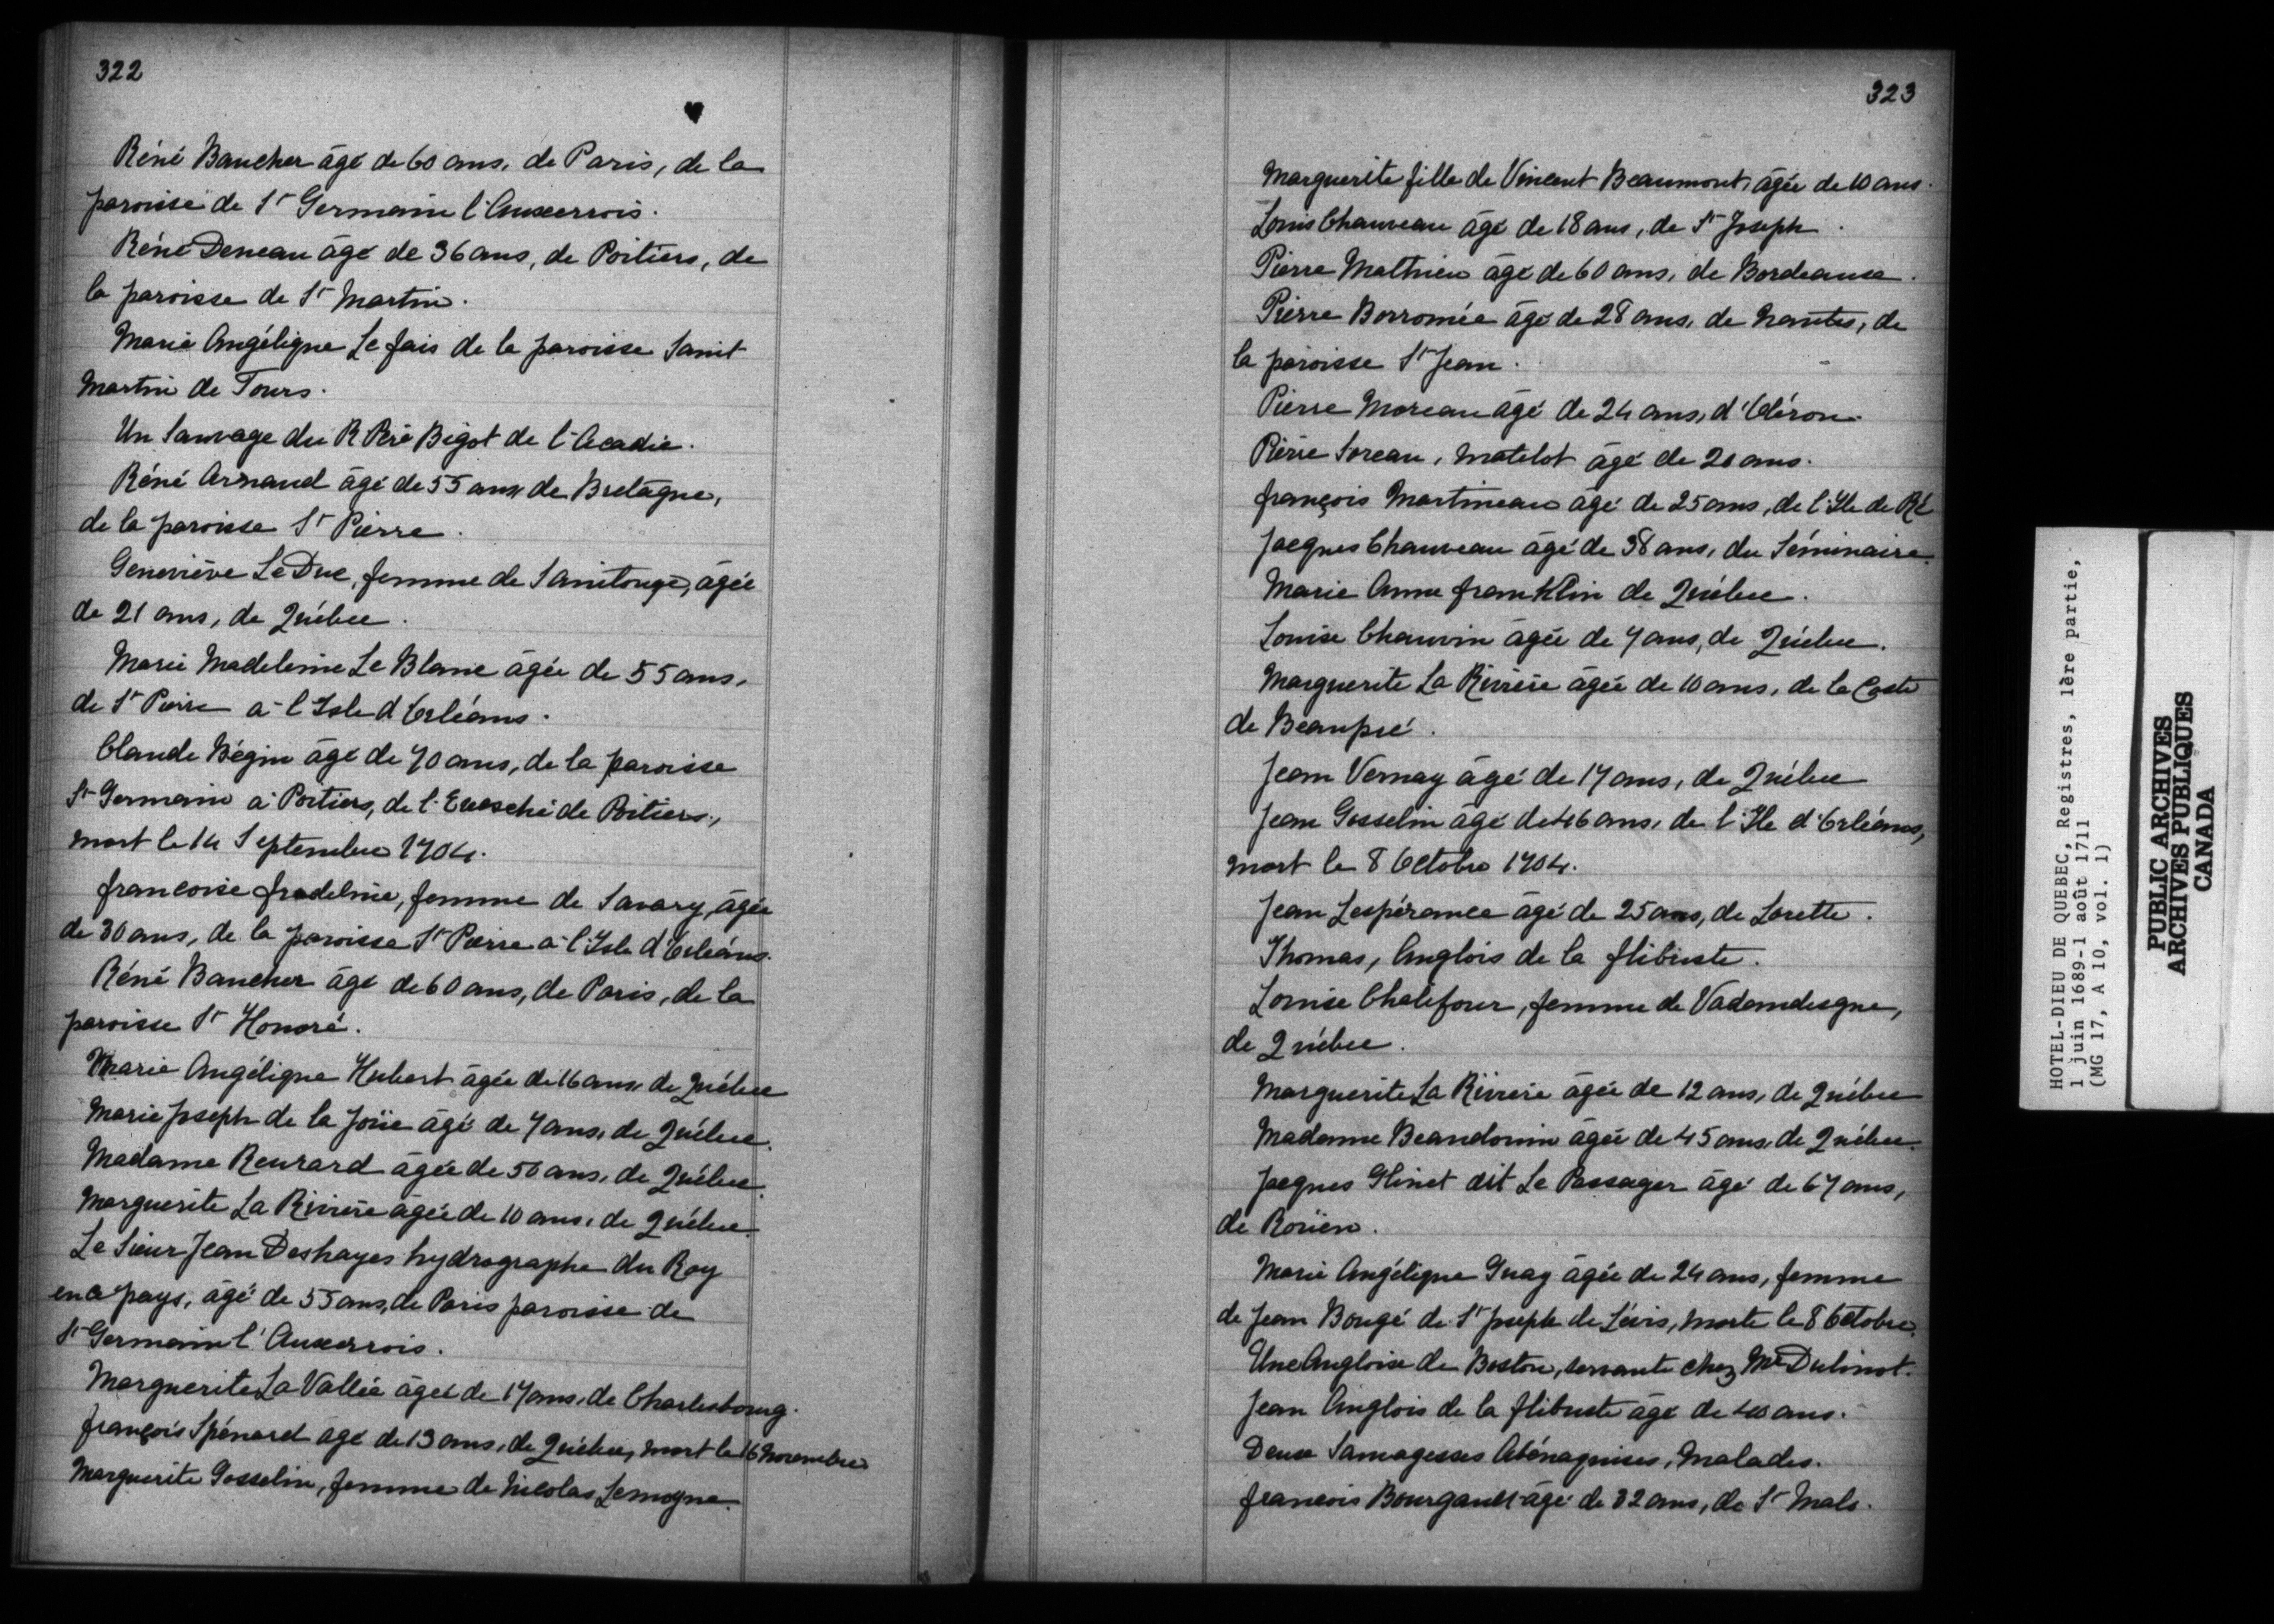 322
Réné Baucher âgé de 60 ans, de Paris, de la
paroisse de St Germain l'Auxerrois.
Réné Deneau âgé de 36 ans, de Poitiers, de
la paroisse de St Martin.
Marie Angélique Le fais de la paroisse Saint
Martin de Tours.
Un Sauvage du R Père Bigot de l'Acadie.
Réné Arnaud âgé de 55 ans de Bretagne,
de la paroisse St Pierre.
Geneviève Le Duc, femme de Saintonge, âgée
de 21 ans, de Québec.
Marie Madeleine Le Blanc âgée de 55 ans,
de St Pierre a l'Isle d'Orléans.
Claude Bégin âgé de 70 ans, de la paroisse
St Germain a Poitiers, de l'Evesché de Poitiers,
mort le 14 Septembre 1704.
francoise fradeline, femme de Savary, âgée
de 30 ans, de la paroisse St Pierre a l'Isle d'Orléans.
Réné Baucher âgé de 60 ans, de Paris, de la
paroisse St Honoré.
Marie Angélique Hubert âgée de 16 ans, de Québec
Marie Joseph de la Joüe âgé de 7 ans, de Québec.
Madame Reurard âgée de 50 ans, de Québec.
Marguerite La Rivière âgée de 10 ans, de Québec.
Le Sieur Jean Deshayes hydrographe du Roy
en ce pays, âgé de 55 ans, de Paris paroisse de
St Germain l'Auxerrois.
Marguerite La Vallée âgée de 17 ans, de Charlesbourg.
françois Spénard âgé de 13 ans, de Québec, mort le 16 Novembre
Marguerite Gosselin, femme de Nicolas Lemoyne.
323
Marguerite fille de Vincent Beaumont, âgée de 10 ans.
Louis Chauveau âgé de 18 ans, de St Joseph.
Pierre Mathieu âgé de 60 ans, de Bordeaux.
Pierre Borromée âgé de 28 ans, de Nantes, de
la paroisse St Jean.
Pierre Moreau âgé de 24 ans, d'Oléron.
Pierre Soreau, Matelot âgé de 20 ans.
françois Martineau âgé de 25 ans, de l'Ile de Ré
Jacques Chauveau âgé de 38 ans, du Séminaire.
Marie Anne franklin de Québec.
Louise Chauvin âgée de 7 ans, de Québec.
Marguerite La Rivière âgée de 10 ans, de la Coste
de Beaupré.
Jean Vernay âgé de 17 ans, de Québec
Jean Gosselin âgé de 46 ans, de l'Ile d'Orléans,
mort le 8 Octobre 1704.
Jean Lespérance âgé de 25 ans, de Lorette.
Thomas, Anglois de la flibuste.
Louise Chalifour, femme de Vadandesgne,
de Québec.
Marguerite La Rivière âgée de 12 ans, de Québec
Madame Beaudouin âgée de 45 ans, de Québec.
Jacques Glinet dit Le Passager âgé de 67 ans,
de Roüen.
Marie Angélique Guay âgée de 24 ans, femme
de Jean Bougé de St Joseph de Lévis, morte le 8 Octobre.
Une Angloise de Boston, servante chez Mr Dubinot.
Jean Anglois de la flibuste âgé de 40 ans.
Deux Sauvagesses Abénaquises, Malades.
francois Bourgault âgé de 32 ans, de St Malo.
HOTEL-DIEU DE QUEBEC, Registres, 1ère partie,
1 juin 1689-1 août 1711
(MG 17, A 10, vol. 1)
PUBLIC ARCHIVES
ARCHIVES PUBLIQUES
CANADA